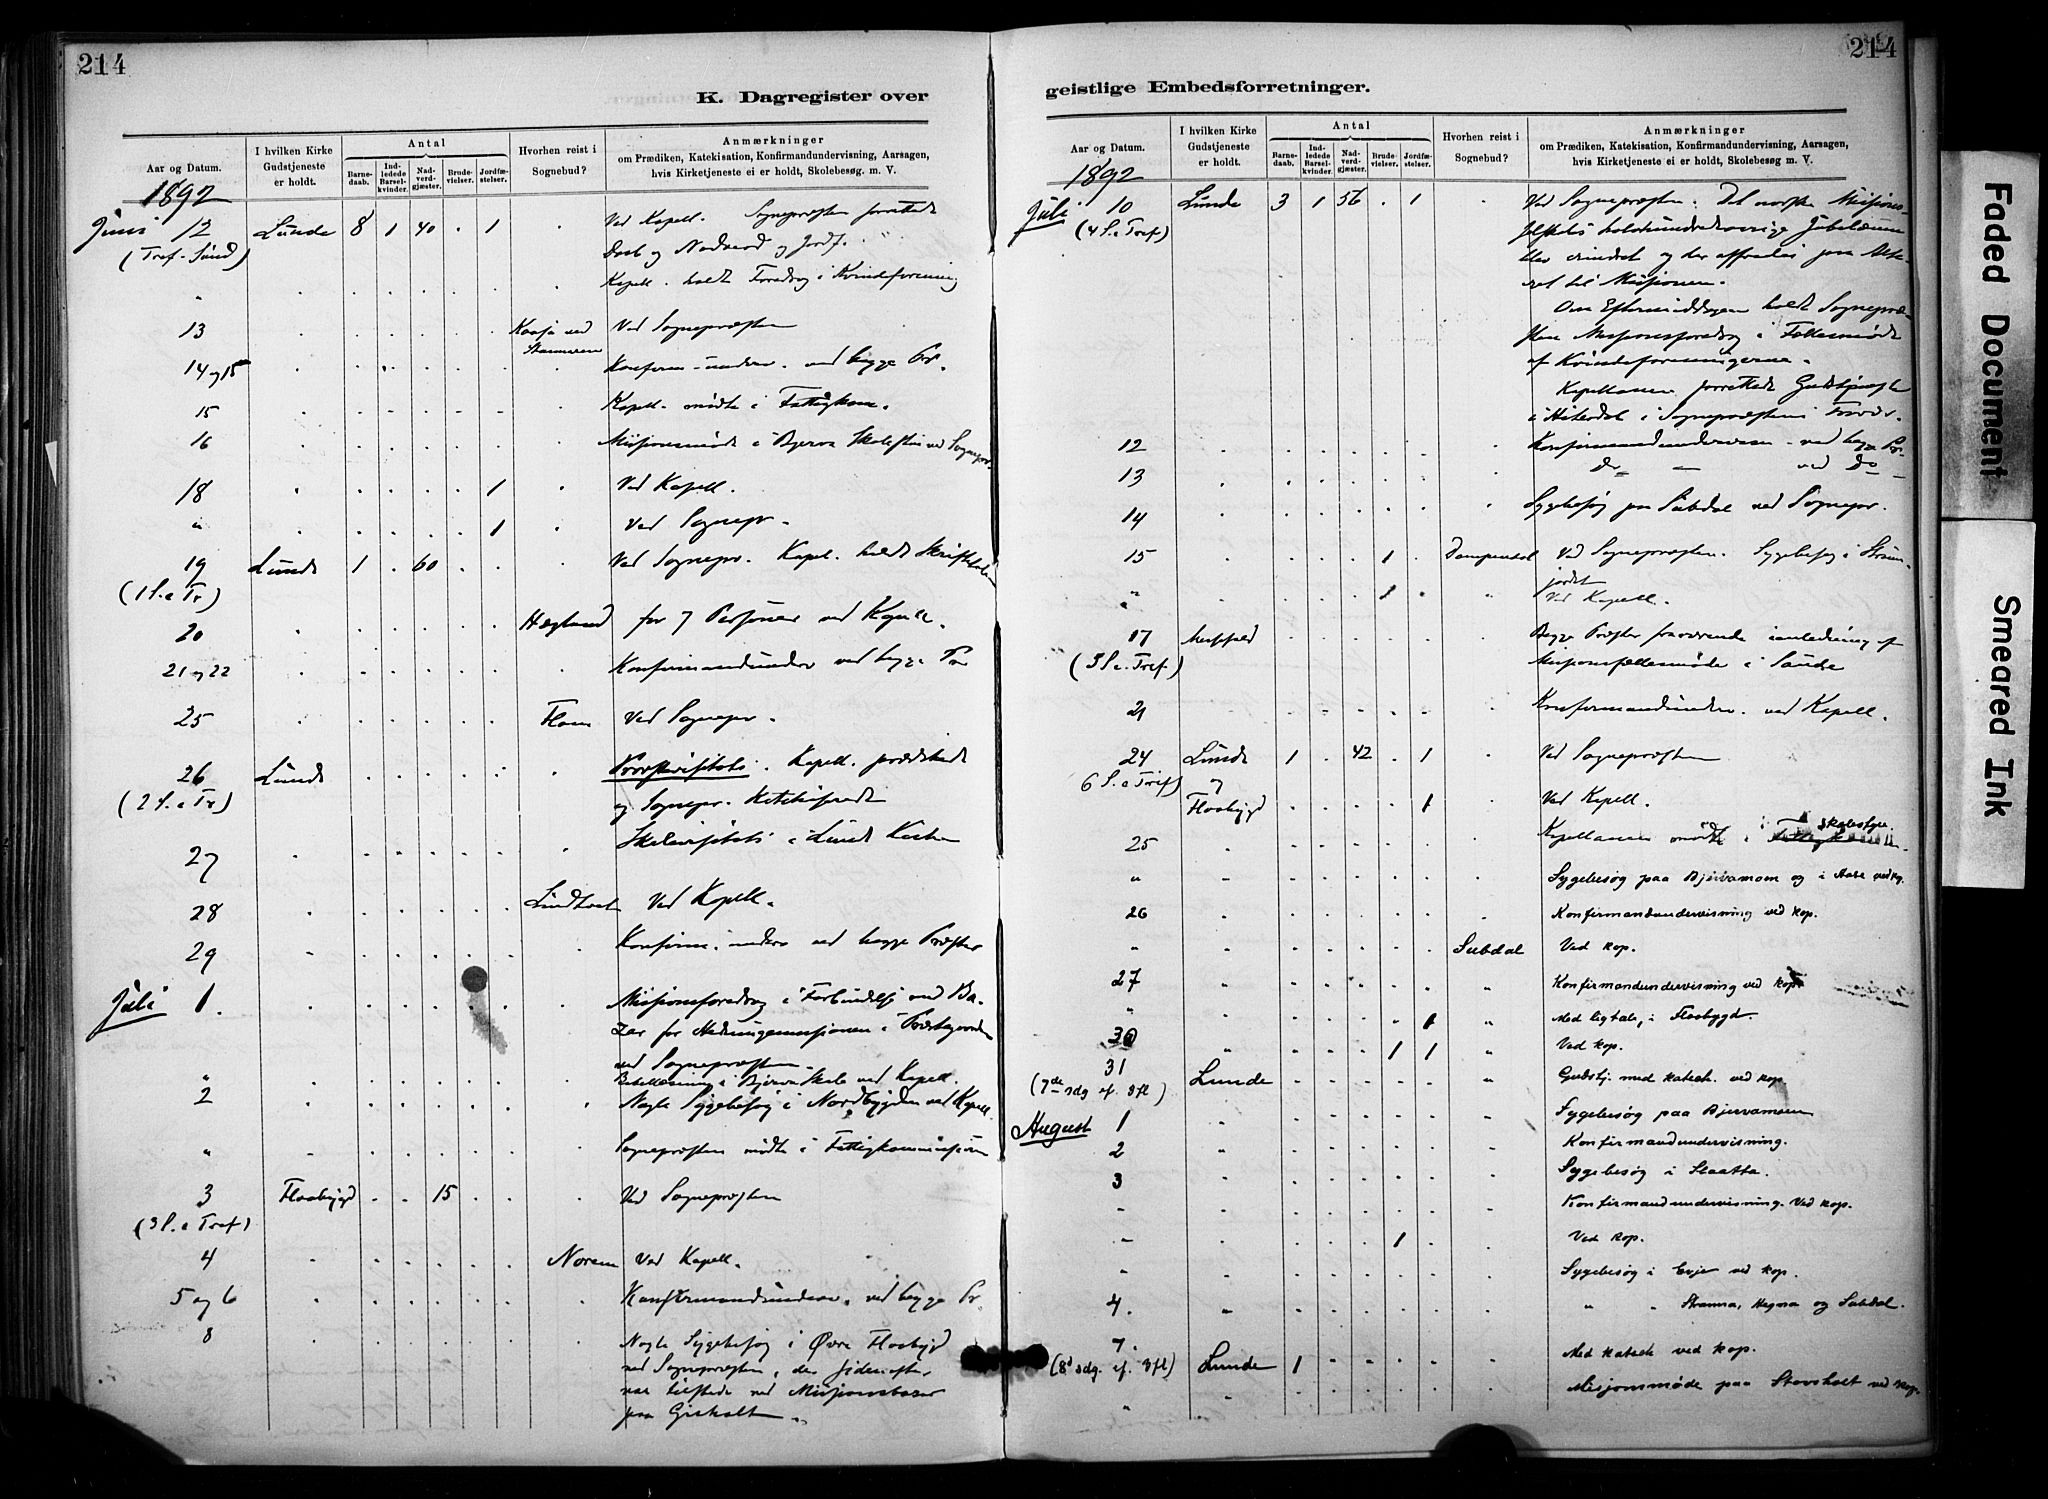 214
K. Dagregister over
Aar og Datum.
I hvilken Kirke Gudstjeneste er holdt.
Antal
Barne- daab.
Ind- ledede Barsel- kvinder.
Nad- verd- gjæster.
Brude- vielser.
Jordfæ- stelser.
Hvorhen reist i Sognebud?
Anmærkninger
om Prædiken, Katekisation, Konfirmandundervisning, Aarsagen,
hvis Kirketjeneste ei er holdt, Skolebesøg m. V.
1892
Juni 12 Lunde 8 1 40 . 1 . Ved Kapell. Sognepræsten forrettede
(Tref. Sønd) Daab og Nadverd og Jordf.
" Kapell. holdt Foredrag i Kvindeforening
13 Ved Sognepræsten
14 og 15 Konfirm-underv. ved begge Pr.
15 Kapell. mødte i Fattigkom.
16 Missionsmøde i Bjerva Skolestue ved Sognepr.
18 1 Ved Kapell.
" 1 Ved Sognepr.
19 Lunde 1 . 60 Ved Sognepr. Kapel. holdt Skriftetalen
(1 S. e Tr)
20 Hægland for 7 Personer ved Kapell.
21 og 22 Konfirmandunderv ved begge Pr
25 Flom Ved Sognepr.
26 Lunde Provstevisitats. Kapell. prædikede
(2 S. e Tr) og Sognepr. Katekiserede
27 Skolevisitats i Lunde Kirke
28 Lindtvet Ved Kapell.
29 Konfirm. underv ved begge Præster
Juli 1. Missionsforedrag i Forbindelse med Ba-
zar for Hedningemissionen i Præstegaarden
ved Sognepræsten.
" Bibellæsning i Bjerva Skole ved Kapell.
2 Nogle Sygebesøg i Nordbygden ved Kapell
" Sognepræsten mødte i Fattigkommissionen
3 Flaabygd . . 15 . . Ved Sognepræsten
(3 S. e Tref)
4 Norem Ved Kapell.
5 og 6 Konfirmandunderv. ved begge Pr.
8 Nogle Sygebesøg i Øvre Flaabygd
ved Sognepræsten, der siden efter
var tilstede ved Missionsbazar
paa Gisholt.
214
geistlige Embedsforretninger.
Aar og Datum.
I hvilken Kirke Gudstjeneste er holdt.
Antal
Barne- daab.
Ind- ledede Barsel- kvinder.
Nad- verd- gjæster.
Brude- vielser.
Jordfæ- stelser.
Hvorhen reist i Sognebud?
Anmærkninger
om Prædiken, Katekisation, Konfirmandundervisning, Aarsagen,
hvis Kirketjeneste ei er holdt, Skolebesøg m. V.
1892
Juli 10 Lunde 3 1 56 . 1 Ved Sognepræsten. Det norske Missions-
(4 S. e Tref) selskabs halvhundredaarige Jubelæum
blev mindet og der ofredes paa Alte-
ret til Missionen.
Om Eftermiddagen holdt Sognepræ-
sten Missionsforedrag i Fællesmøde
af Kvindeforeningerne.
Kapellanen forrettede Gudstjeneste
i Hiterdal i Sognepræstens Fravær.
12 Konfirmandundervisn. ved begge Pr.
13 do — ved Do
14 Sygebesøg paa Subdal ved Sognepr.
15 1 Dompendal Ved Sognepræsten. Sygebesøg i Straum-
jordet
" 1 Ved Kapell.
17 Messefald Begge Præster fraværende i anledning af
(5 S. e. Tref.) Missionsfællesmøde i Saude
21 Konfirmandunderv. ved Kapell.
24 Lunde 1 . 42 . 1 Ved Sognepræsten
6 S. e Tref) og
Flaabygd 1 Ved Kapell.
25 Kapellanen mødt i Skolestyre
" Sygebesøg paa Bjervamoen og i Aase ved kp.
26 Konfirmandundervisning ved kap.
" Subdal Ved kap.
27 Konfirmandundervisning ved kap.
" 1 Med ligtale, i Flaabygd.
30 1 1 Ved kap.
31 Lunde Gudstj. med katech. ved kap.
(7de sdg ef. 3fl)
August 1 Sygebesøg paa Bjervamoen
2 Konfirmandundervisning.
3 Sygebesøg i Slaatta.
" Konfirmandundervisning. Ved kap.
" 1 Ved kap.
" Sygebesøg i Evje ved kap.
4. " " Stranna, Hegna og Subdal.
7. Lunde 1 Med katech ved kap.
(8d sdg. ef. 3fl)
" Misjonsmøde paa Stavsholt ved kap.
Faded Document
Smeared Ink